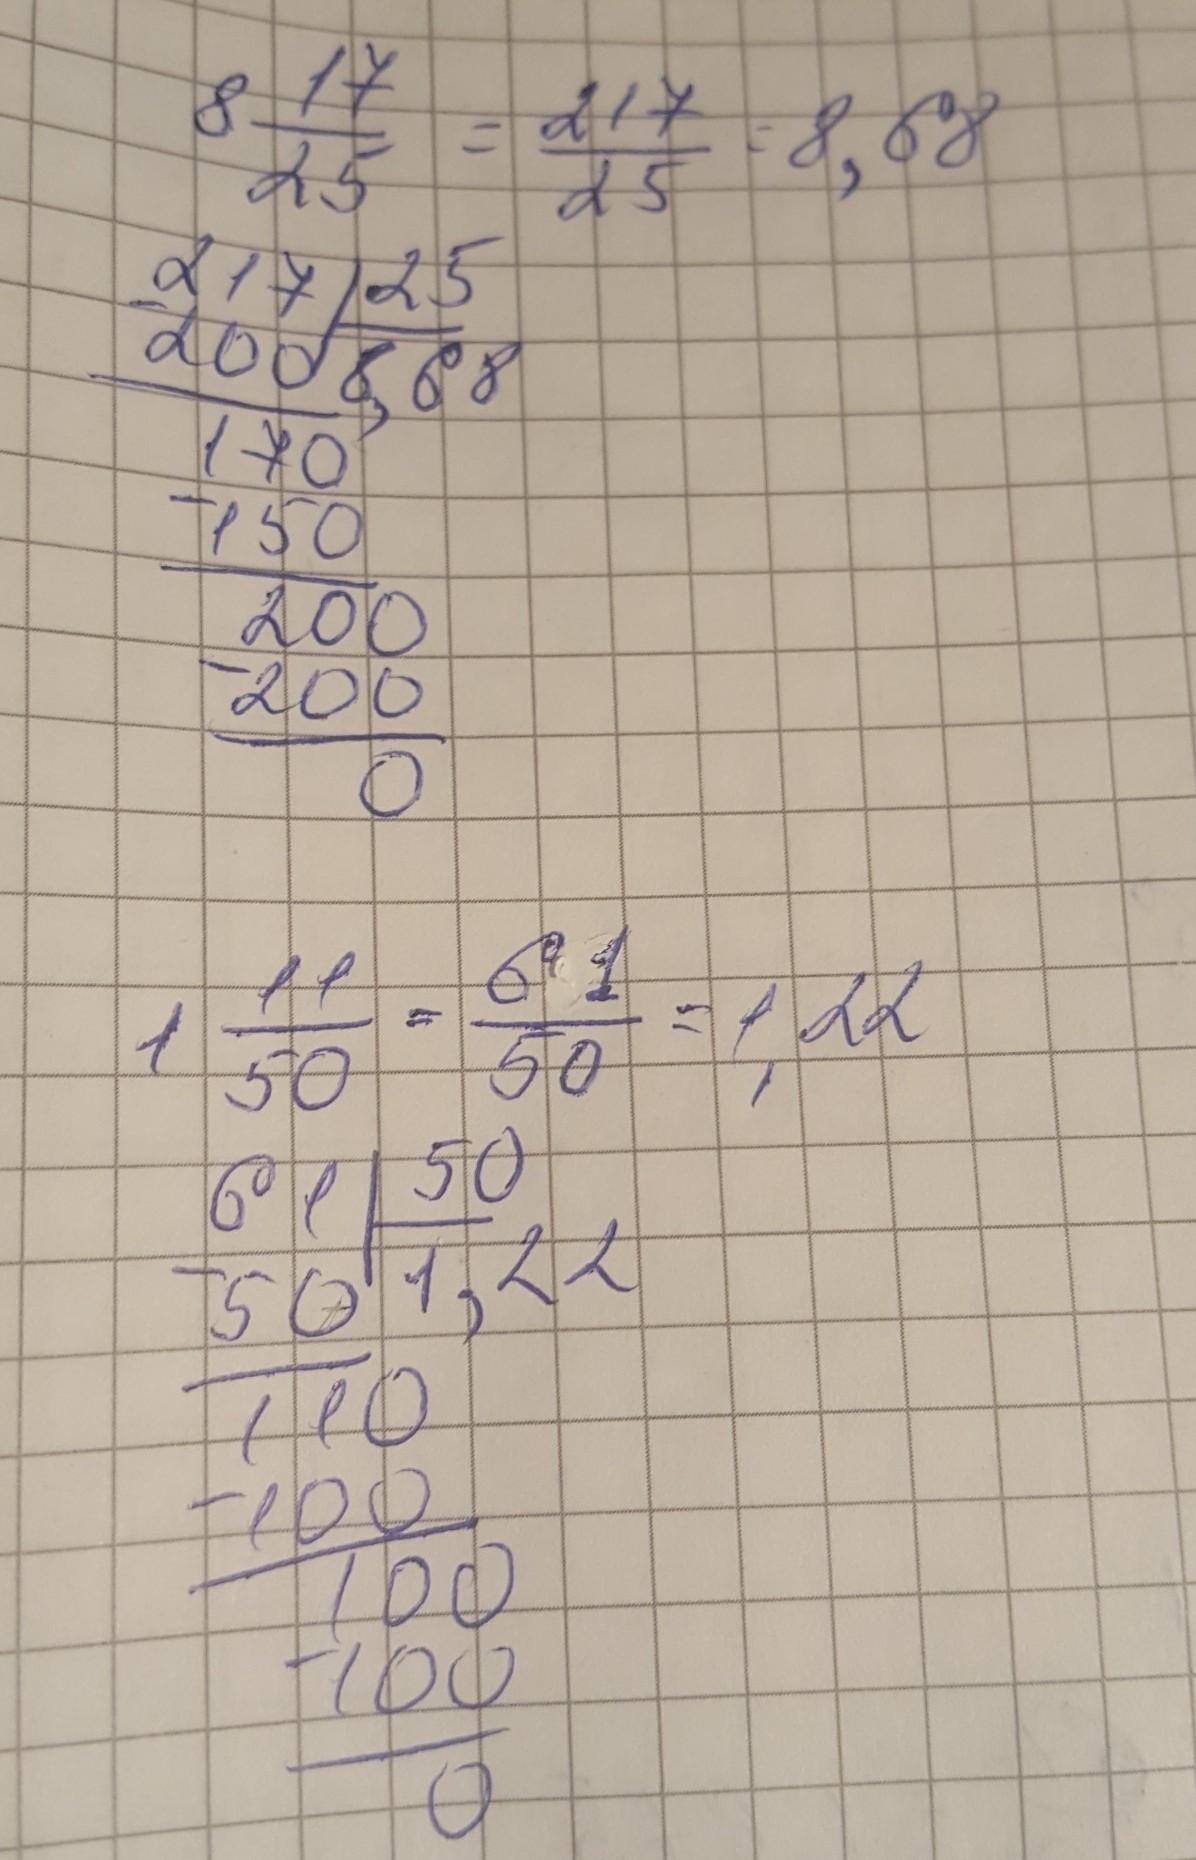 8 17/25 = 217/25 = 8,68
217 | 25
- 200 | 8,68
170
- 150
200
- 200
0
1 11/50 = 61/50 = 1,22
61 | 50
- 50 | 1,22
110
- 100
100
- 100
0